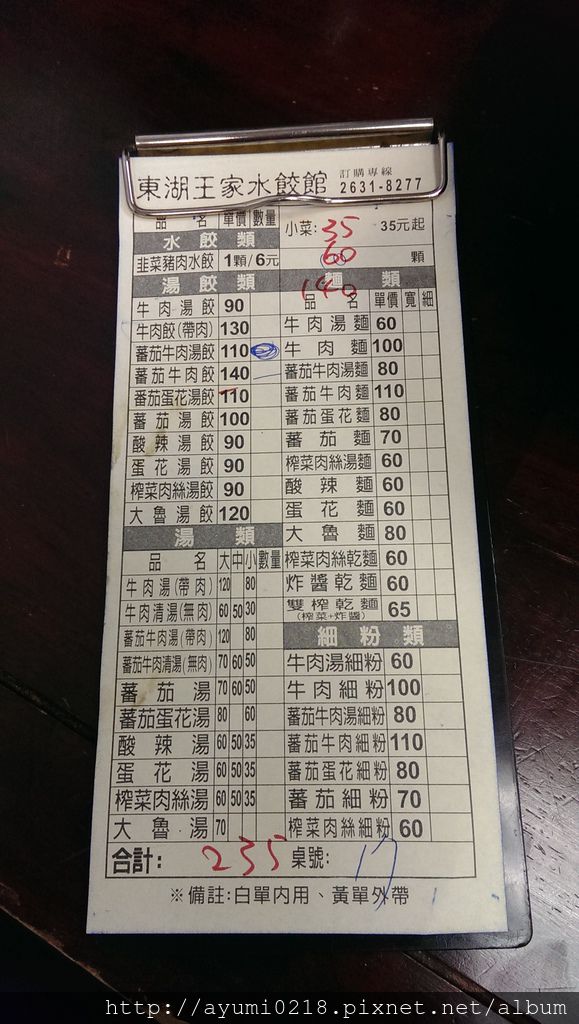 東湖王家水餃館 訂購專線 2631-8277
品名 單價 數量
水餃類
韭菜豬肉水餃 1顆/6元
湯餃類
牛肉湯餃 90
牛肉餃(帶肉) 130
蕃茄牛肉湯餃 110
蕃茄牛肉餃 140
番茄蛋花湯餃 110
蕃茄湯餃 100
酸辣湯餃 90
蛋花湯餃 90
榨菜肉絲湯餃 90
大魯湯餃 120
湯類
品名 大 中 小 數量
牛肉湯(帶肉) 120 80
牛肉清湯(無肉) 60 50 30
蕃茄牛肉湯(帶肉) 120 80
蕃茄牛肉清湯(無肉) 70 60 50
蕃茄湯 70 60 50
蕃茄蛋花湯 80 60
酸辣湯 60 50 35
蛋花湯 60 50 35
榨菜肉絲湯 60 50 35
大魯湯 70
小菜: 35 35元起
60 顆
麵類
140
品名 單價 寬 細
牛肉湯麵 60
牛肉麵 100
蕃茄牛肉湯麵 80
蕃茄牛肉麵 110
蕃茄蛋花麵 80
蕃茄麵 70
榨菜肉絲湯麵 60
酸辣麵 60
蛋花麵 60
大魯麵 80
榨菜肉絲乾麵 60
炸醬乾麵 60
雙榨乾麵 65
(榨菜+炸醬)
細粉類
牛肉湯細粉 60
牛肉細粉 100
蕃茄牛肉湯細粉 80
蕃茄牛肉細粉 110
蕃茄蛋花細粉 80
蕃茄細粉 70
榨菜肉絲細粉 60
合計: 235 桌號: 17
※備註:白單內用、黃單外帶
http://ayumi0218.pixnet.net/album